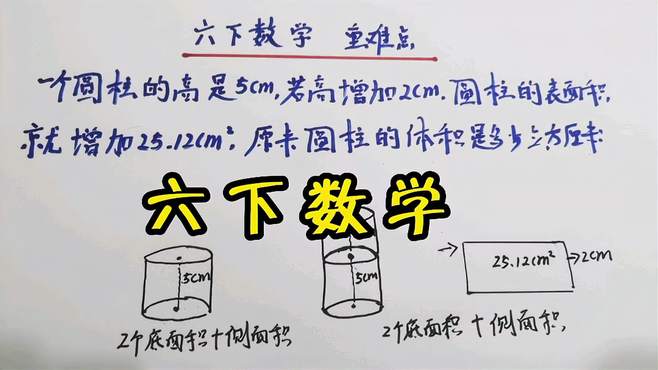 六下数学 重难点
一个圆柱的高是5cm,若高增加2cm.圆柱的表面积,
就增加25.12cm²,原来圆柱的体积是多少立方厘米
六下数学
5cm
5cm
25.12cm²
2cm
2个底面积+侧面积
2个底面积+侧面积